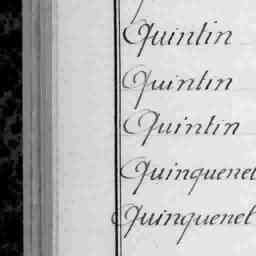 Quintin
Quintin
Quintin
Quinquenel
Quinquenel